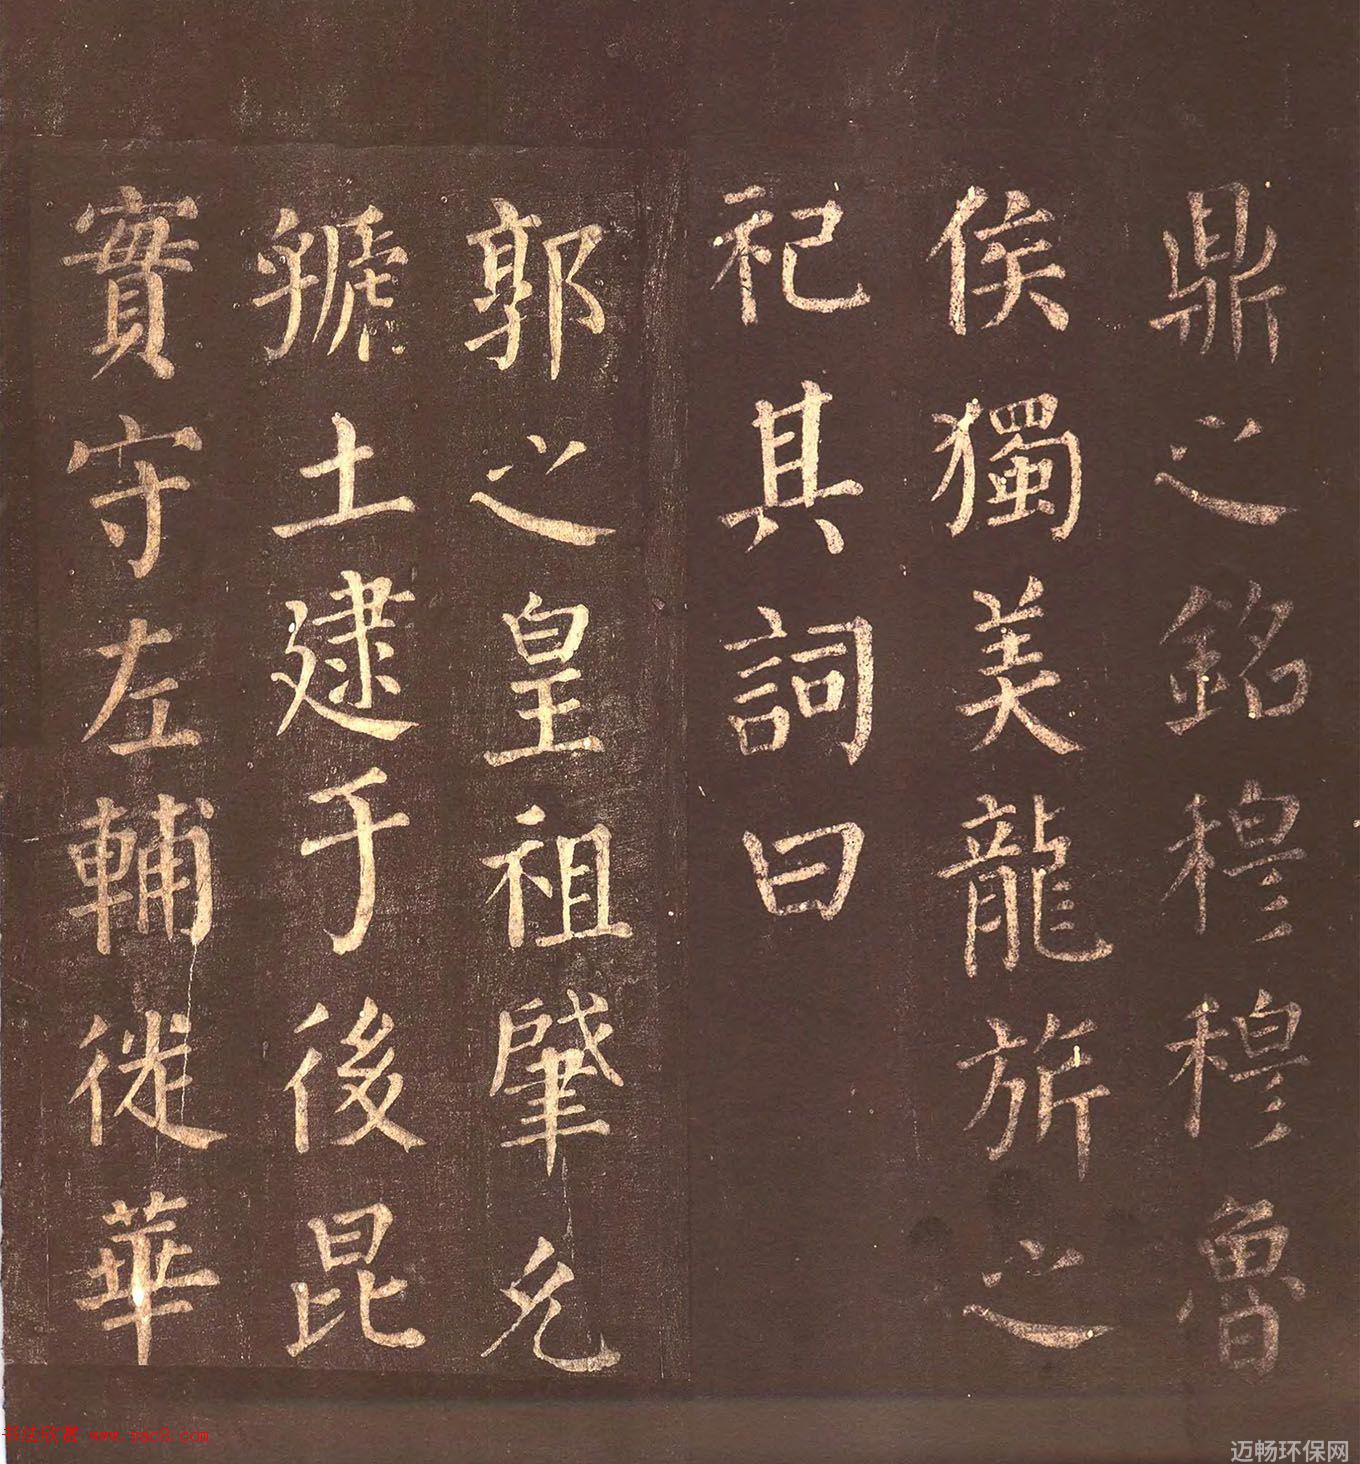 鼎之銘穆穆魯
侯獨美龍旂之
祀其詞曰
郭之皇祖肇允
虢土建于後昆
實守左輔徙華
书法欣赏 www.sac8.com
迈畅环保网